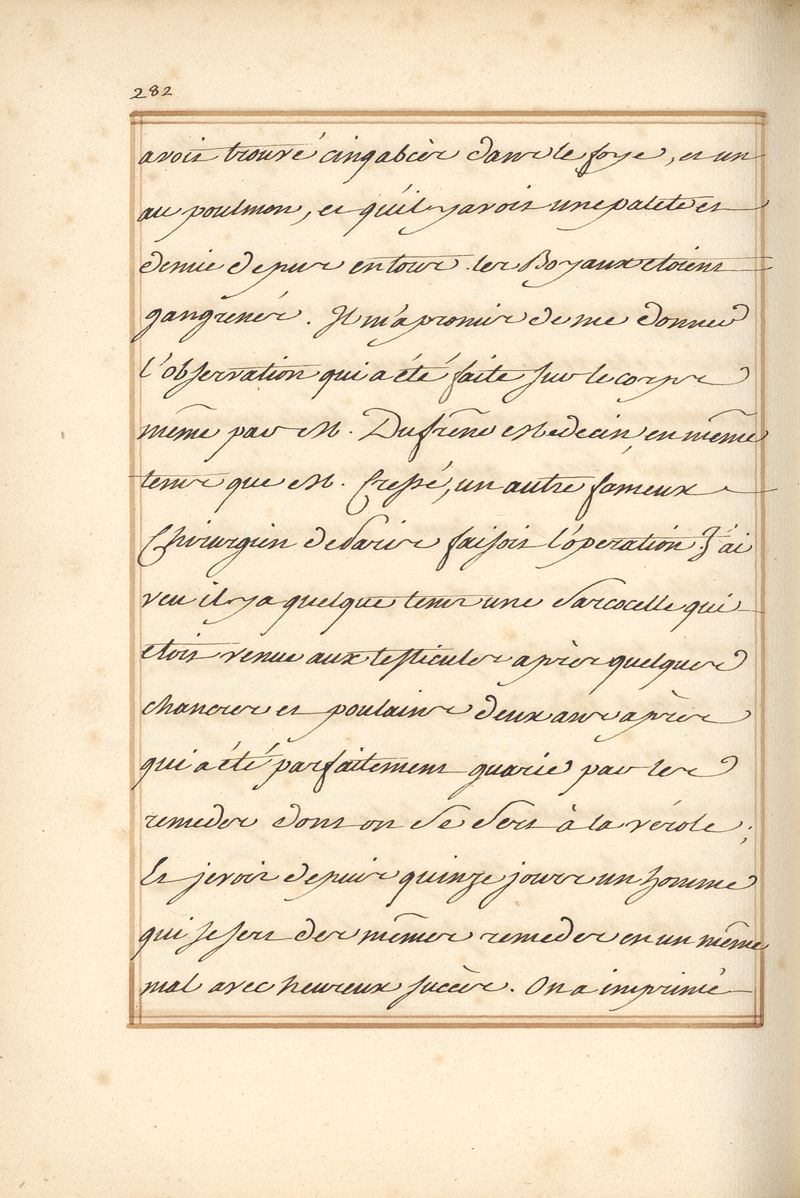 282
avoit trouvé cinq abcès dans le foye, et un
au poulmon, et qu'il y avoit une palete et
demie de pus entour les Boyaux etoient
gangrenés. Il m'a promis de me donner
l'observation qui a été faite sur le corps
même par M. Dufrêne Medecin en même
tems que M. Cressé, un autre fameux
Chirurgien de Paris faisoit l'operation. J'ai
veu il y a quelque tems une Sarcocelle qui
etoit venue aux testicules après quelques
chancres et poulains deux ans après
qui a été parfaitement guarie par les
remedes dont on se sert à la vérole ;
Et je vois depuis quinze jours un homme
qui se sert des mêmes remedes en un même
mal avec heureux succès. On a imprimé